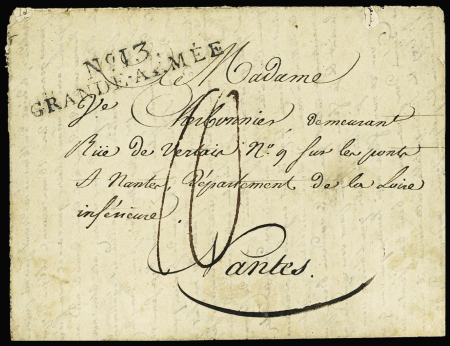 No. 13.
GRANDE-ARMÉE
A Madame
Ve Charbonnier demeurant
Rüe de Vertais No. 9 sur les ponts
A Nantes, Département de la Loire
inférieure.
Nantes.